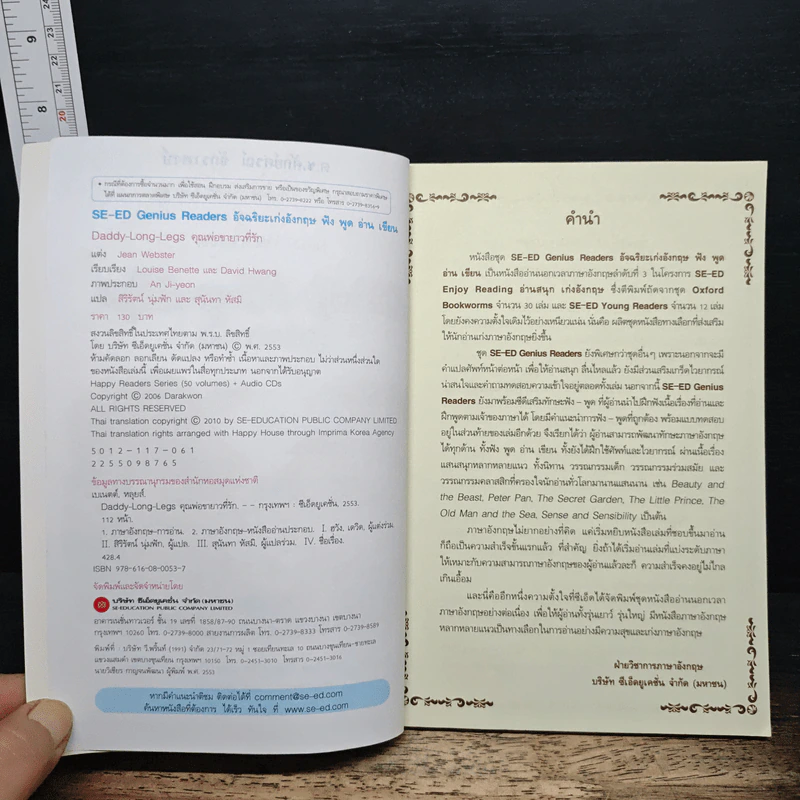 • กรณีที่ต้องการซื้อจำนวนมาก เพื่อใช้สอน ฝึกอบรม ส่งเสริมการขาย หรือเป็นของขวัญพิเศษ กรุณาสอบถามราคาพิเศษ
ได้ที่ แผนกการตลาดพิเศษ บริษัท ซีเอ็ดยูเคชั่น จำกัด (มหาชน) โทร. 0-2739-8222 หรือ โทรสาร 0-2739-8356-9
SE-ED Genius Readers อัจฉริยะเก่งอังกฤษ ฟัง พูด อ่าน เขียน
Daddy-Long-Legs คุณพ่อขายาวที่รัก
แต่ง Jean Webster
เรียบเรียง Louise Benette และ David Hwang
ภาพประกอบ An Ji-yeon
แปล สิริรัตน์ นุ่มฟัก และ สุนันทา หัสมิ
ราคา 130 บาท
สงวนลิขสิทธิ์ในประเทศไทยตาม พ.ร.บ. ลิขสิทธิ์
โดย บริษัท ซีเอ็ดยูเคชั่น จำกัด (มหาชน) © พ.ศ. 2553
ห้ามคัดลอก ลอกเลียน ดัดแปลง หรือทำซ้ำ เนื้อหาและภาพประกอบ ไม่ว่าส่วนหนึ่งส่วนใด
ของหนังสือเล่มนี้ เพื่อเผยแพร่ในสื่อทุกประเภท นอกจากได้รับอนุญาต
Happy Readers Series (50 volumes) + Audio CDs
Copyright © 2006 Darakwon
ALL RIGHTS RESERVED
Thai translation copyright © 2010 by SE-EDUCATION PUBLIC COMPANY LIMITED
Thai translation rights arranged with Happy House through Imprima Korea Agency
5 0 1 2 - 1 1 7 - 0 6 1
2 2 5 5 0 9 8 7 6 5
ข้อมูลทางบรรณานุกรมของสำนักหอสมุดแห่งชาติ
เบเนตต์, หลุยส์.
Daddy-Long-Legs คุณพ่อขายาวที่รัก. -- กรุงเทพฯ : ซีเอ็ดยูเคชั่น, 2553.
112 หน้า.
1. ภาษาอังกฤษ-การอ่าน. 2. ภาษาอังกฤษ-หนังสืออ่านประกอบ. I. ฮวัง, เดวิด, ผู้แต่งร่วม.
II. สิริรัตน์ นุ่มฟัก, ผู้แปล. III. สุนันทา หัสมิ, ผู้แปลร่วม. IV. ชื่อเรื่อง.
428.4
ISBN 978-616-08-0053-7
จัดพิมพ์และจัดจำหน่ายโดย
บริษัท ซีเอ็ดยูเคชั่น จำกัด (มหาชน)
SE-EDUCATION PUBLIC COMPANY LIMITED
อาคารเนชั่นทาวเวอร์ ชั้น 19 เลขที่ 1858/87-90 ถนนบางนา-ตราด แขวงบางนา เขตบางนา
กรุงเทพฯ 10260 โทร. 0-2739-8000 สายงานการผลิต โทร. 0-2739-8333 โทรสาร 0-2739-8589
พิมพ์ที่ : บริษัท วี.พริ้นท์ (1991) จำกัด 23/71-72 หมู่ 1 ซอยเทียนทะเล 10 ถนนบางขุนเทียน-ชายทะเล
แขวงแสมดำ เขตบางขุนเทียน กรุงเทพฯ 10150 โทร. 0-2451-3010 โทรสาร 0-2451-3016
นายวิเชียร กาญจนพัฒนา ผู้พิมพ์ พ.ศ. 2553
หากมีคำแนะนำติชม ติดต่อได้ที่ comment@se-ed.com
ค้นหาหนังสือที่ต้องการ ได้เร็ว ทันใจ ที่ www.se-ed.com
คำนำ
หนังสือชุด SE-ED Genius Readers อัจฉริยะเก่งอังกฤษ ฟัง พูด
อ่าน เขียน เป็นหนังสืออ่านนอกเวลาภาษาอังกฤษลำดับที่ 3 ในโครงการ SE-ED
Enjoy Reading อ่านสนุก เก่งอังกฤษ ซึ่งตีพิมพ์ถัดจากชุด Oxford
Bookworms จำนวน 30 เล่ม และ SE-ED Young Readers จำนวน 12 เล่ม
โดยยังคงความตั้งใจเดิมไว้อย่างเหนียวแน่น นั่นคือ ผลิตชุดหนังสือทางเลือกที่ส่งเสริม
ให้นักอ่านเก่งภาษาอังกฤษยิ่งขึ้น
ชุด SE-ED Genius Readers ยังพิเศษกว่าชุดอื่นๆ เพราะนอกจากจะมี
คำแปลศัพท์หน้าต่อหน้า เพื่อให้อ่านสนุก ลื่นไหลแล้ว ยังมีส่วนเสริมเกร็ดไวยากรณ์
น่าสนใจและคำถามทดสอบความเข้าใจอยู่ตลอดทั้งเล่ม นอกจากนี้ SE-ED Genius
Readers ยังมาพร้อมซีดีเสริมทักษะฟัง – พูด ที่ผู้อ่านนำไปฝึกฟังเนื้อเรื่องที่อ่านและ
ฝึกพูดตามเจ้าของภาษาได้ โดยมีคำแนะนำการฟัง – พูดที่ถูกต้อง พร้อมแบบทดสอบ
อยู่ในส่วนท้ายของเล่มอีกด้วย จึงเรียกได้ว่า ผู้อ่านสามารถพัฒนาทักษะภาษาอังกฤษ
ได้ทุกด้าน ทั้งฟัง พูด อ่าน เขียน ทั้งยังได้ฝึกใช้ศัพท์และไวยากรณ์ ผ่านเนื้อเรื่อง
แสนสนุกหลากหลายแนว ทั้งนิทาน วรรณกรรมเด็ก วรรณกรรมร่วมสมัย และ
วรรณกรรมคลาสสิกที่ครองใจนักอ่านทั่วโลกมานานแสนนาน เช่น Beauty and
the Beast, Peter Pan, The Secret Garden, The Little Prince, The
Old Man and the Sea, Sense and Sensibility เป็นต้น
ภาษาอังกฤษไม่ยากอย่างที่คิด แค่เริ่มหยิบหนังสือเล่มที่ชอบขึ้นมาอ่าน
ก็ถือเป็นความสำเร็จขั้นแรกแล้ว ที่สำคัญ ยิ่งถ้าได้เริ่มอ่านเล่มที่แบ่งระดับภาษา
ให้เหมาะกับความสามารถภาษาอังกฤษของผู้อ่านด้วยละก็ ความสำเร็จคงอยู่ไม่ไกล
เกินเอื้อม
และนี่คืออีกหนึ่งความตั้งใจที่ซีเอ็ดได้จัดพิมพ์ชุดหนังสืออ่านนอกเวลา
ภาษาอังกฤษอย่างต่อเนื่อง เพื่อให้ผู้อ่านทั้งรุ่นเยาว์ รุ่นใหญ่ มีหนังสือภาษาอังกฤษ
หลากหลายแนวเป็นทางเลือกในการอ่านอย่างมีความสุขและเก่งภาษาอังกฤษ
ฝ่ายวิชาการภาษาอังกฤษ
บริษัท ซีเอ็ดยูเคชั่น จำกัด (มหาชน)
9
8
20